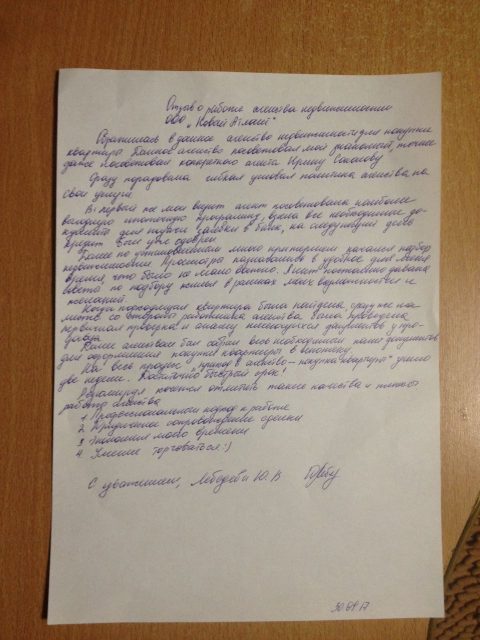 Отзыв о работе агенства недвижимости
ООО "Новый Атлант"
Обратилась в данное агенство недвижимости для покупки
квартиры. Данное агенство посоветовал мой знакомый, точнее
даже посоветовал конкретного агента Ирину Соколову
Сразу порадовала гибкая ценовая политика агенства на
свои услуги.
В первый же мой визит агент посоветовала наиболее
выгодную ипотечную программу, взяла все необходимые до-
кументы для подачи заявки в банк, на следующий день
кредит был уже одобрен
Далее по установленным мною критериям начался подбор
недвижимости. Просмотры назначались в удобное для меня
время, что было не мало важно. Агент постоянно давала
советы по подбору жилья в рамках моих возможностей и
желаний
Когда подходящая квартира была найдена, сразу же на
месте со стороны работников агенства была проведена
первичная проверка и анализ имеющихся документов у про-
давца
Далее агенством был собран весь необходимый пакет документов
для оформления покупки квартиры в ипотеку.
На весь процес "приход в агенство - покупка квартиры" ушло
две недели. Достаточно быстрый срок!
Резюмируя хочется отметить такие качества и плюсы
работы агенства
1. Профессиональный подход к работе
2. Юридическое сопровождение сделки
3. Экономия моего времени
4. Умение торговаться :)
С уважением, Лебедева Ю. В